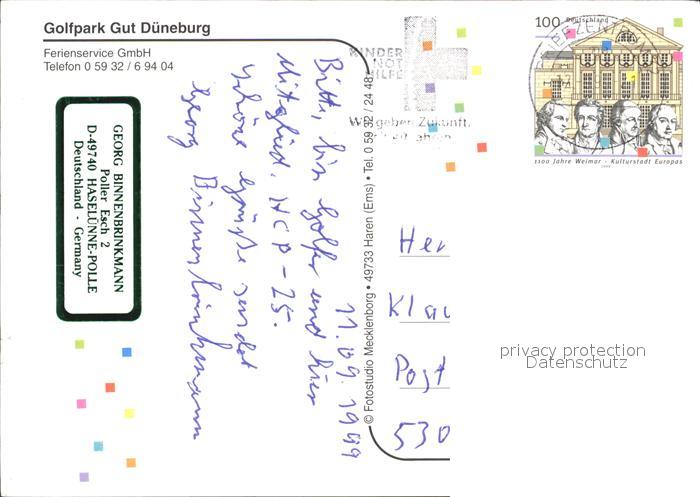 Golfpark Gut Düneburg
Ferienservice GmbH
Telefon 0 59 32 / 6 94 04
GEORG BINNENBRINKMANN
Poller Esch 2
D-49740 HASELÜNNE-POLLE
Deutschland - Germany
11.09.1999
Bitte, bin Golfer und hier
Mitglied. HCP-25.
Schöne Grüße sendet
Georg Binnenbrinkmann
© Fotostudio Mecklenborg • 49733 Haren (Ems) • Tel. 0 59 32 / 24 48
KINDER
NOT
HILFE
Wir geben Zukunft.
100 Deutschland
1100 Jahre Weimar - Kulturstadt Europas
1999
Her
Klau
Post
530
privacy protection
Datenschutz